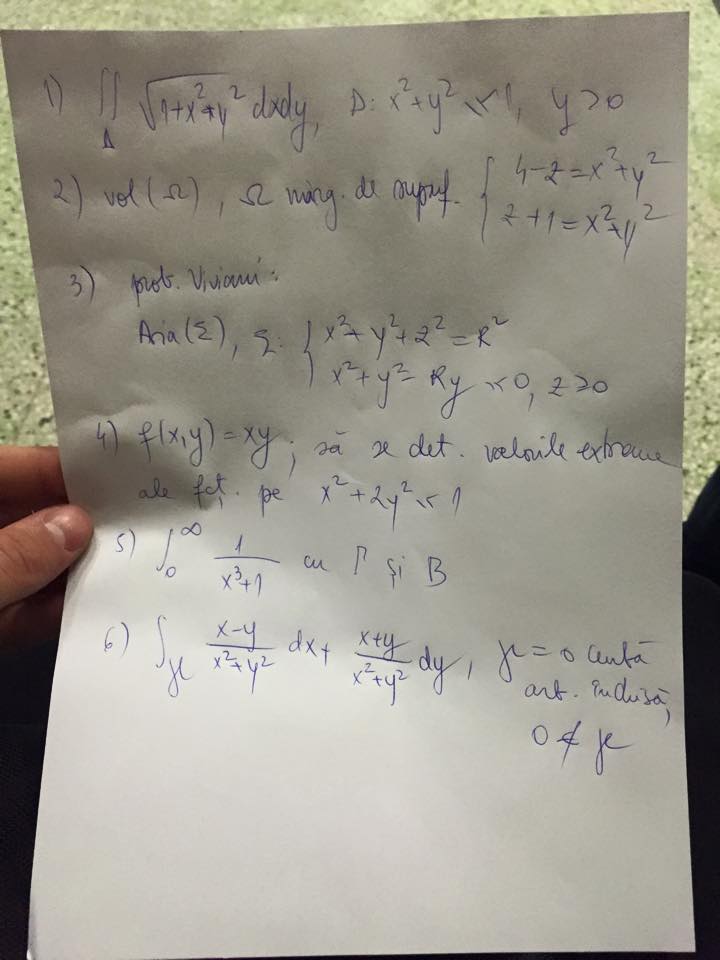 1) ∬_D √(1+x²+y²) dxdy, D: x²+y² ≤ 1, y ≥ 0
2) vol(Ω), Ω mărg. de supraf. { 4-z = x²+y²
z+1 = x²+y²
3) prob. Viviani:
Aria(Σ), Σ: { x²+y²+z² = R²
x²+y²-Ry ≤ 0, z ≥ 0
4) f(x,y) = xy; să se det. valorile extreme
ale fct. pe x²+2y² ≤ 1
5) ∫_0^∞ 1/(x³+1) cu Γ și B
6) ∫_γ (x-y)/(x²+y²) dx + (x+y)/(x²+y²) dy, γ = o curbă
arb. închisă,
0 ∉ γ